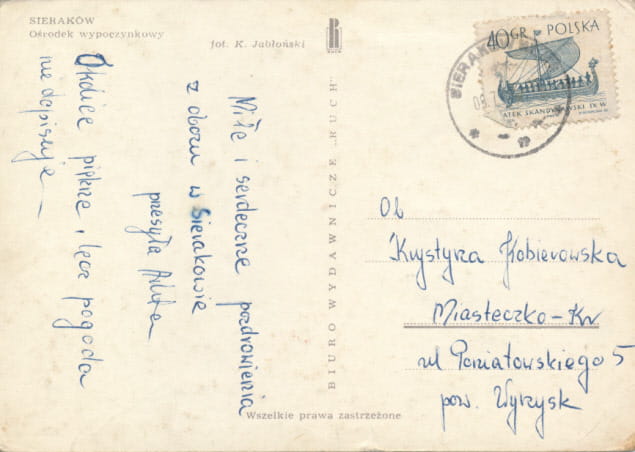 SIERAKÓW
Ośrodek wypoczynkowy
fot. K. Jabłoński
RUCH
Miłe i serdeczne pozdrowienia
z obozu w Sierakowie
przesyła
Okolice piękne, lecz pogoda
nie dopisuje
BIURO WYDAWNICZE „RUCH"
Wszelkie prawa zastrzeżone
40 GR POLSKA
STATEK SKANDYNAWSKI IX W
SIERAK
Ob
Krystyna Kobierowska
Miasteczko-Kr
ul Poniatowskiego 5
pow. Wyrzysk